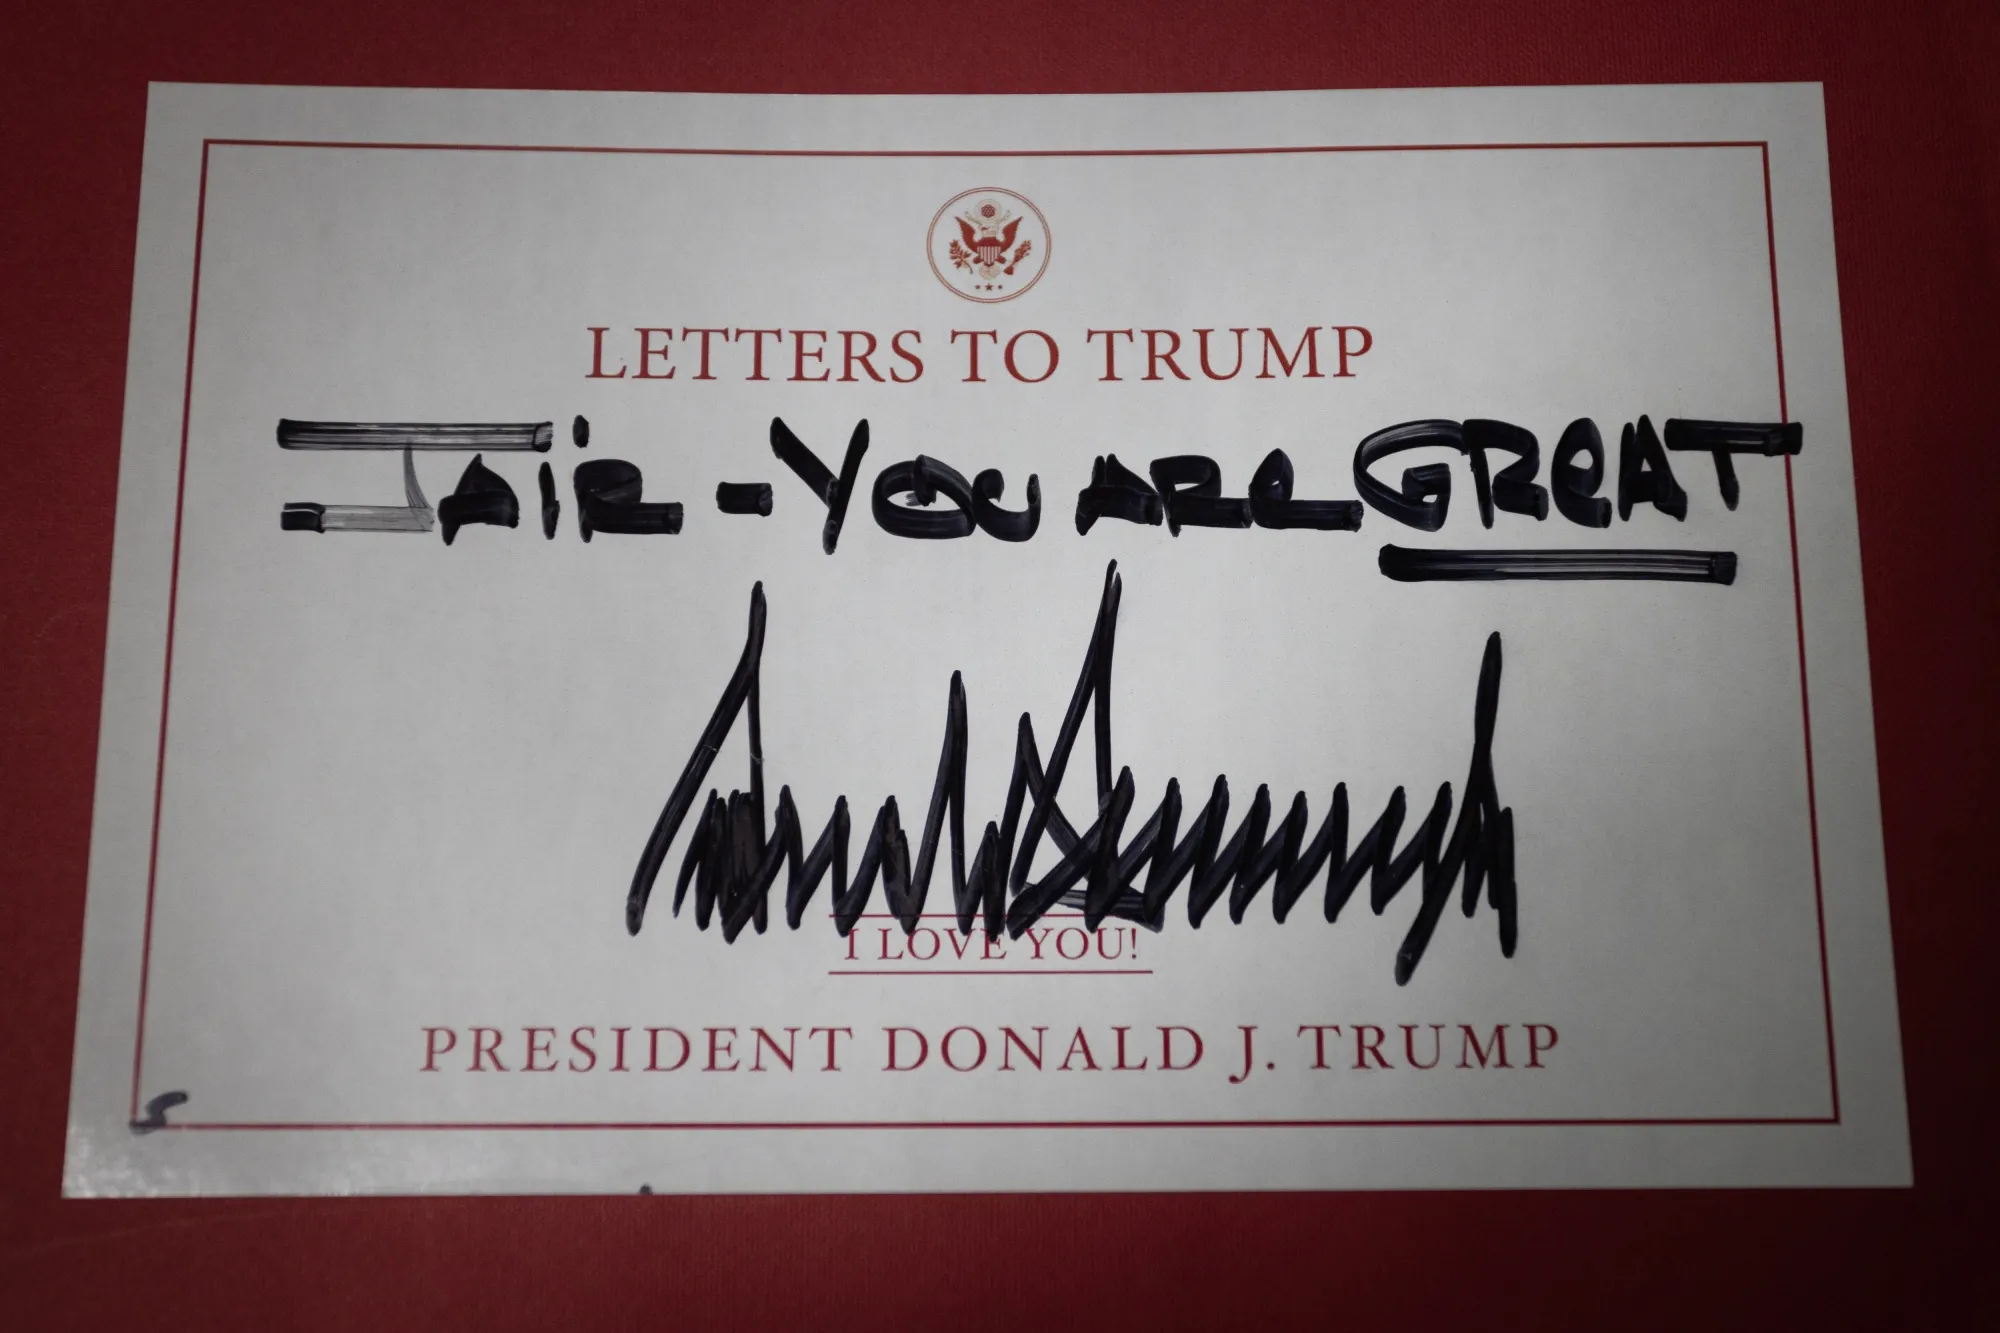 LETTERS TO TRUMP
JAiR - YOU ARe GReAT
I LOVE YOU!
PRESIDENT DONALD J. TRUMP